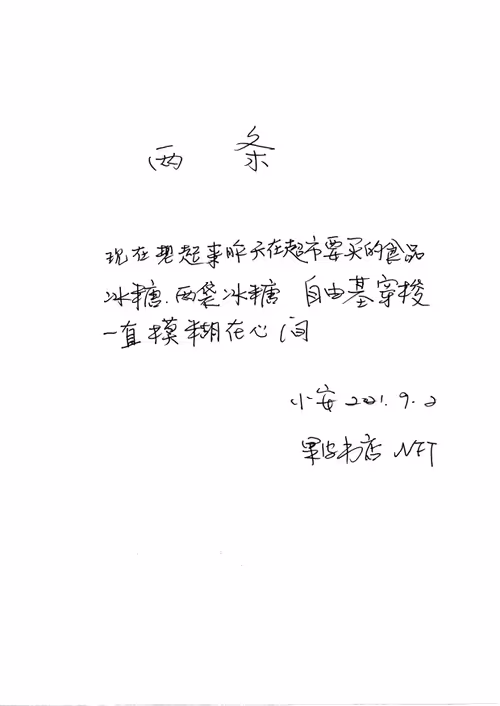 两条
现在想起来昨天在超市要买的食品
冰糖.两袋冰糖 自由基穿梭
一直模糊在心间
小安 2021.9.2
果皮书店 NFT